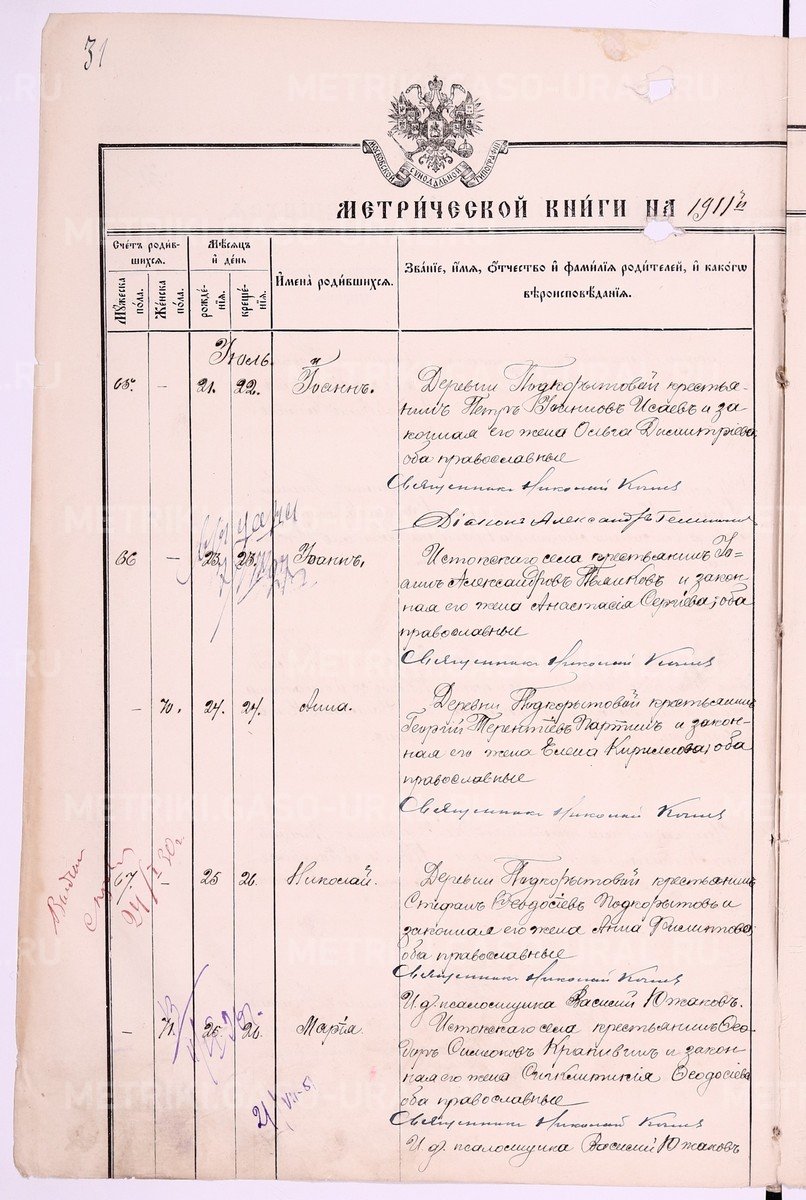 31
МОСКОВСКОЙ СѴНОДАЛЬНОЙ ТИПОГРАФІИ
МЕТРИ́ЧЕСКОЙ КНИ́ГИ НА 1911й
Сче́тъ роди́в-
шихсѧ.
Мѣ́сѧцъ
и҆ де́нь
Мꙋ́жеска
по́ла.
Же́нска
по́ла.
рожде́-
нїѧ.
креще́-
нїѧ.
И҆мена̀ роди́вшихсѧ.
Зва́нїе, и҆́мѧ, ѻ҆́тчество и҆ фами́лїѧ роди́телей, и҆ како́гѡ
вѣроисповѣ́данїѧ.
Іюль.
65. - 21. 22. Іоаннъ.
Деревни Подкорытовой крестья-
нинъ Петръ Іоанновъ Исаевъ и за-
конная его жена Ольга Димитріева,
оба православные
Священникъ Николай
Діаконъ Александръ
66 - 23. 23. Іоаннъ.
Истокскаго села крестьянинъ Іо-
аннъ Александровъ и закон-
ная его жена Анастасія Сергіева; оба
православные
Священникъ Николай
- 70. 24. 24. Анна.
Деревни Подкорытовой крестьянинъ
Георгій Терентіевъ Партинъ и закон-
ная его жена Елена Кириллова; оба
православные
Священникъ Николай
67. - 25 26. Николай.
Деревни Подкорытовой крестьянинъ
Стефанъ Ѳеодосіевъ Подкорытовъ и
законная его жена Анна Филиппова;
оба православные
Священникъ Николай
И. д. псаломщика Василій Южаковъ.
24/I 30 г.
- 71. 25. 26. Марія.
Истокскаго села крестьянинъ Ѳео-
доръ Симеоновъ Крапивинъ и закон-
ная его жена Сигклитикія Ѳеодосіева
оба православные
Священникъ Николай
И. д. псаломщика Василій Южаковъ
METRIKI.GASO-URAL.RU